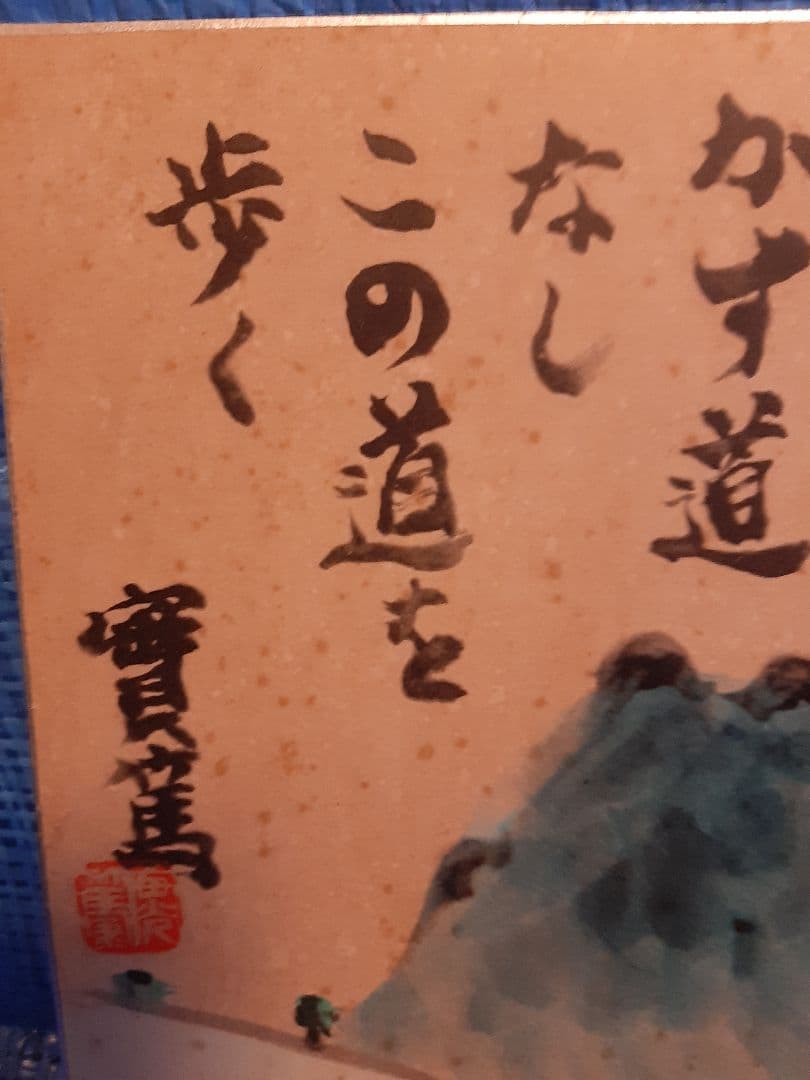 かす道
なし
この道を
歩く
實篤